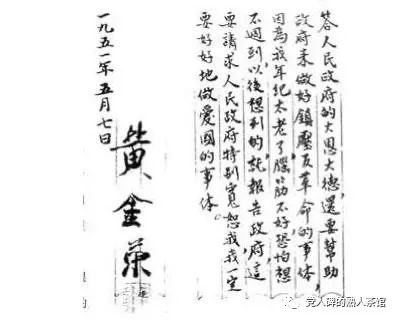 答人民政府的大恩大德，還要幫助
政府来做好鎮壓反革命的事体，
因為我年纪太老了腦筋不好恐怕想
不週到，以後想到的，就報告政府，這
要請求人民政府特别寬恕我，我一定
要好好地做愛國的事体。
一九五一年五月七日
黄金荣
党人碑的熟人茶馆